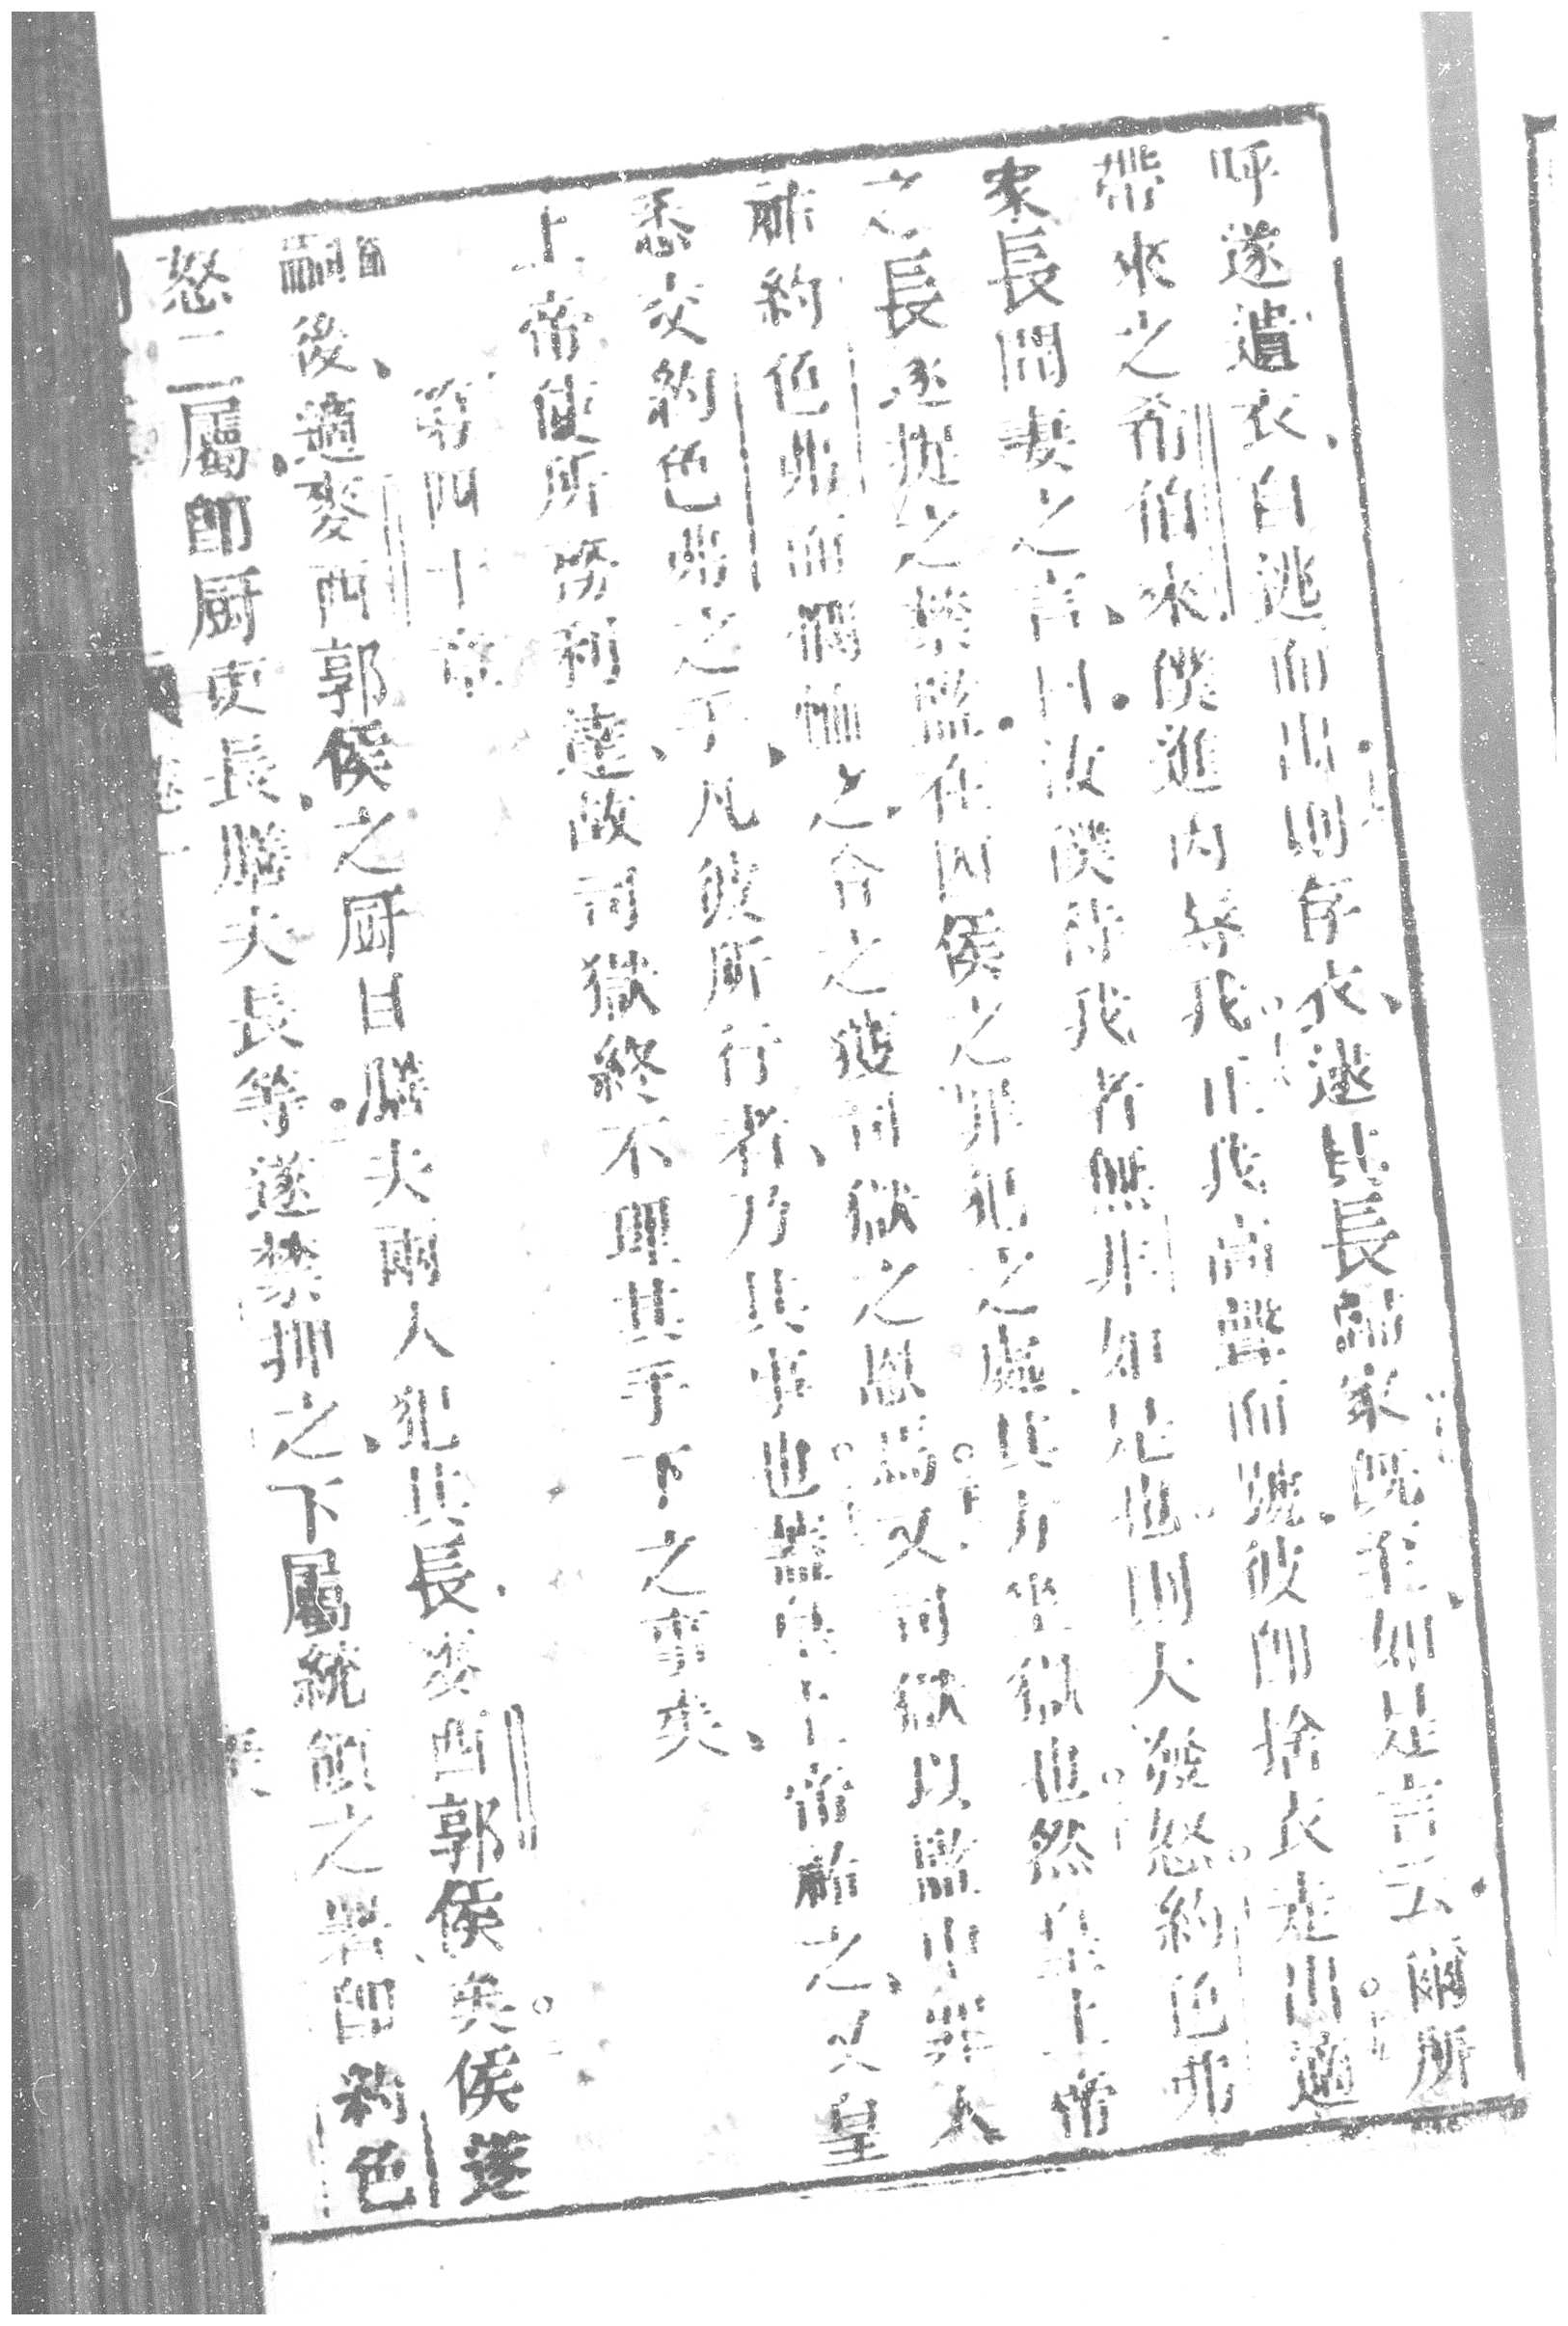 呼遂遺衣自逃而出則存衣逮其長歸家既至如是言云爾所
帶來之希伯來僕進內辱我正我高聲而號彼即捨衣走出適
家長聞妻之言曰汝僕待我者無非如是也則大發怒約色弗
之長逐捉之禁監在因侯之罪犯之處其方坐獄也然皇上帝
祐約色弗而憫恤之令之獲司獄之恩焉又司獄以監中罪人
悉交約色弗之手凡彼所行者乃其事也蓋皇上帝祐之又皇
上帝使所務利達故司獄終不理其手下之事矣
第四十章
嗣後適麥西郭侯之厨曰膳夫兩人犯其長麥西郭侯矣侯遂
怒二屬即厨吏長膳夫長等遂禁押之下屬統領之署即約色